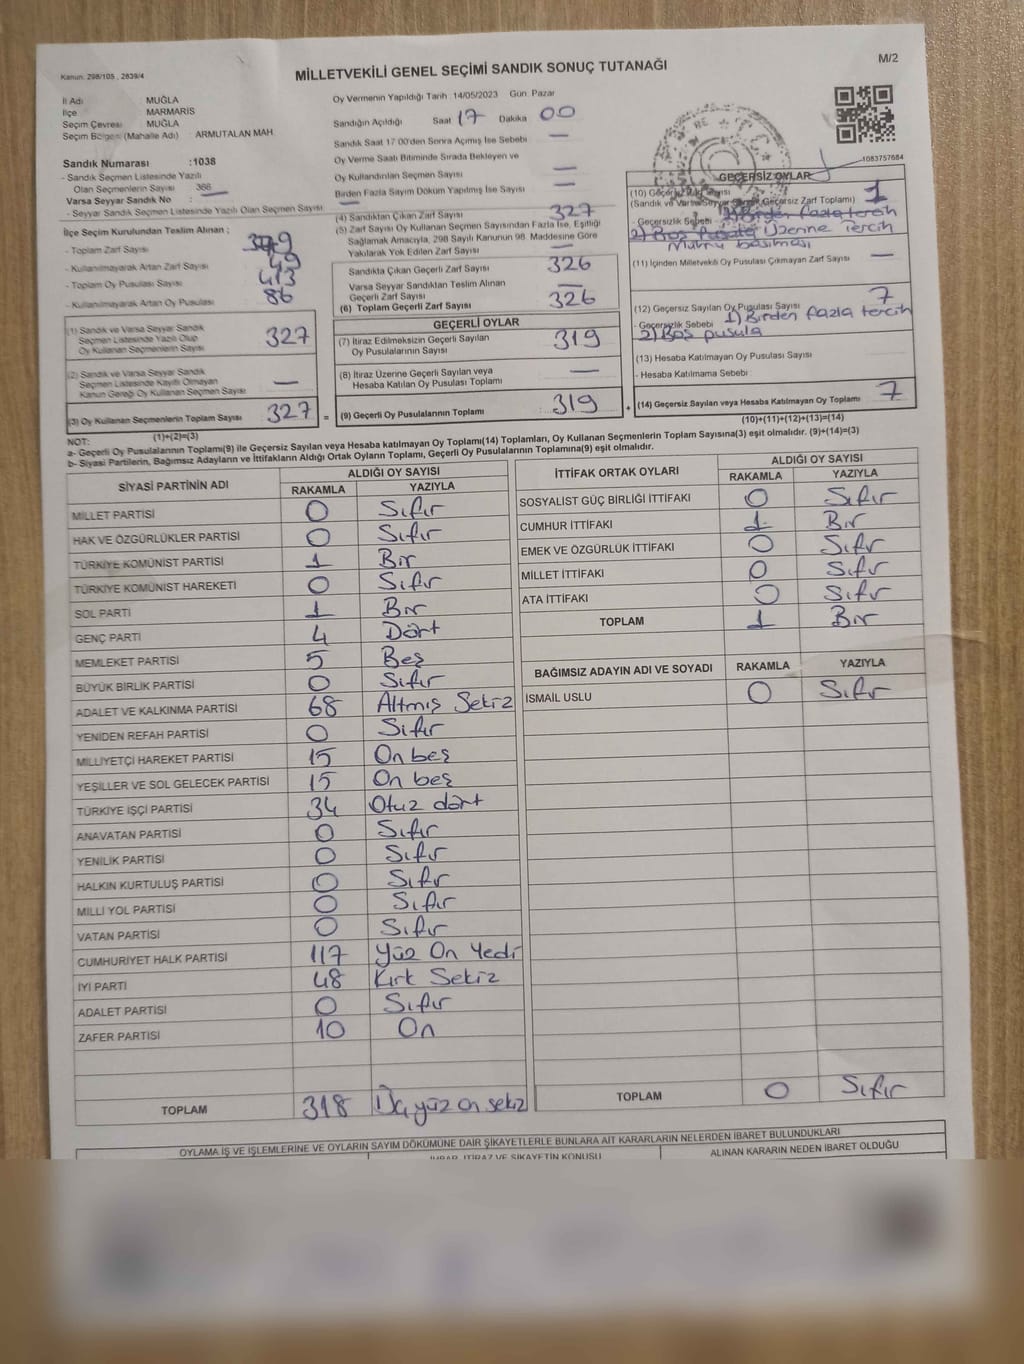 M/2
Kanun: 298/105 , 2839/4
MİLLETVEKİLİ GENEL SEÇİMİ SANDIK SONUÇ TUTANAĞI
İl Adı MUĞLA
İlçe MARMARİS
Seçim Çevresi MUĞLA
Seçim Bölgesi (Mahalle Adı) : ARMUTALAN MAH.
Sandık Numarası :1038
- Sandık Seçmen Listesinde Yazılı
Olan Seçmenlerin Sayısı : 366
Varsa Seyyar Sandık No : —
- Seyyar Sandık Seçmen Listesinde Yazılı Olan Seçmen Sayısı —
İlçe Seçim Kurulundan Teslim Alınan ;
- Toplam Zarf Sayısı
- Kullanılmayarak Artan Zarf Sayısı 49
- Toplam Oy Pusulası Sayısı 413
- Kullanılmayarak Artan Oy Pusulası 86
(1) Sandık ve Varsa Seyyar Sandık
Seçmen Listesinde Yazılı Olup
Oy Kullanan Seçmenlerin Sayısı 327
(2) Sandık ve Varsa Seyyar Sandık
Seçmen Listesinde Kayıtlı Olmayan
Kanun Gereği Oy Kullanan Seçmen Sayısı —
(3) Oy Kullanan Seçmenlerin Toplam Sayısı 327
(1)+(2)=(3)
Oy Vermenin Yapıldığı Tarih 14/05/2023 Gün: Pazar
Sandığın Açıldığı Saat 17 Dakika 00
Sandık Saat 17:00'den Sonra Açılmış İse Sebebi —
Oy Verme Saati Bitiminde Sırada Bekleyen ve
Oy Kullandırılan Seçmen Sayısı —
Birden Fazla Sayım Döküm Yapılmış İse Sayısı —
(4) Sandıktan Çıkan Zarf Sayısı 327
(5) Zarf Sayısı Oy Kullanan Seçmen Sayısından Fazla İse, Eşitliği
Sağlamak Amacıyla, 298 Sayılı Kanunun 98. Maddesine Göre
Yakılarak Yok Edilen Zarf Sayısı —
Sandıkta Çıkan Geçerli Zarf Sayısı 326
Varsa Seyyar Sandıktan Teslim Alınan
Geçerli Zarf Sayısı —
(6) Toplam Geçerli Zarf Sayısı 326
GEÇERLİ OYLAR
(7) İtiraz Edilmeksizin Geçerli Sayılan
Oy Pusulalarının Sayısı 319
(8) İtiraz Üzerine Geçerli Sayılan veya
Hesaba Katılan Oy Pusulası Toplamı —
= (9) Geçerli Oy Pusulalarının Toplamı : 319
1083757684
GEÇERSİZ OYLAR
(10) Geçersiz Zarf Sayısı 1
(Sandık ve Varsa Seyyar Sandık Geçersiz Zarf Toplamı)
- Geçersizlik Sebebi : 1) Birden fazla tercih
2) Boş pusula Üzerine tercih
Mührü basılması
(11) İçinden Milletvekili Oy Pusulası Çıkmayan Zarf Sayısı —
(12) Geçersiz Sayılan Oy Pusulası Sayısı 7
- Geçersizlik Sebebi 1) Birden fazla tercih
2) Boş pusula
(13) Hesaba Katılmayan Oy Pusulası Sayısı
- Hesaba Katılmama Sebebi :
+ (14) Geçersiz Sayılan veya Hesaba Katılmayan Oy Toplamı 7
(10)+(11)+(12)+(13)=(14)
NOT:
a- Geçerli Oy Pusulalarının Toplamı(9) ile Geçersiz Sayılan veya Hesaba katılmayan Oy Toplamı(14) Toplamları, Oy Kullanan Seçmenlerin Toplam Sayısına(3) eşit olmalıdır. (9)+(14)=(3)
b- Siyasi Partilerin, Bağımsız Adayların ve İttifakların Aldığı Ortak Oyların Toplamı, Geçerli Oy Pusulalarının Toplamına(9) eşit olmalıdır.
SİYASİ PARTİNİN ADI ALDIĞI OY SAYISI
RAKAMLA YAZIYLA
MİLLET PARTİSİ 0 Sıfır
HAK VE ÖZGÜRLÜKLER PARTİSİ 0 Sıfır
TÜRKİYE KOMÜNİST PARTİSİ 1 Bir
TÜRKİYE KOMÜNİST HAREKETİ 0 Sıfır
SOL PARTİ 1 Bir
GENÇ PARTİ 4 Dört
MEMLEKET PARTİSİ 5 Beş
BÜYÜK BİRLİK PARTİSİ 0 Sıfır
ADALET VE KALKINMA PARTİSİ 68 Altmış Sekiz
YENİDEN REFAH PARTİSİ 0 Sıfır
MİLLİYETÇİ HAREKET PARTİSİ 15 On beş
YEŞİLLER VE SOL GELECEK PARTİSİ 15 On beş
TÜRKİYE İŞÇİ PARTİSİ 34 Otuz dört
ANAVATAN PARTİSİ 0 Sıfır
YENİLİK PARTİSİ 0 Sıfır
HALKIN KURTULUŞ PARTİSİ 0 Sıfır
MİLLİ YOL PARTİSİ 0 Sıfır
VATAN PARTİSİ 0 Sıfır
CUMHURİYET HALK PARTİSİ 117 Yüz On Yedi
İYİ PARTİ 48 Kırk Sekiz
ADALET PARTİSİ 0 Sıfır
ZAFER PARTİSİ 10 On
TOPLAM 318 Üç yüz on sekiz
İTTİFAK ORTAK OYLARI ALDIĞI OY SAYISI
RAKAMLA YAZIYLA
SOSYALİST GÜÇ BİRLİĞİ İTTİFAKI 0 Sıfır
CUMHUR İTTİFAKI 1 Bir
EMEK VE ÖZGÜRLÜK İTTİFAKI 0 Sıfır
MİLLET İTTİFAKI 0 Sıfır
ATA İTTİFAKI 0 Sıfır
TOPLAM 1 Bir
BAĞIMSIZ ADAYIN ADI VE SOYADI RAKAMLA YAZIYLA
İSMAİL USLU 0 Sıfır
TOPLAM 0 Sıfır
OYLAMA İŞ VE İŞLEMLERİNE VE OYLARIN SAYIM DÖKÜMÜNE DAİR ŞİKAYETLERLE BUNLARA AİT KARARLARIN NELERDEN İBARET BULUNDUKLARI
İHBAR, İTİRAZ VE ŞİKAYETİN KONUSU ALINAN KARARIN NEDEN İBARET OLDUĞU